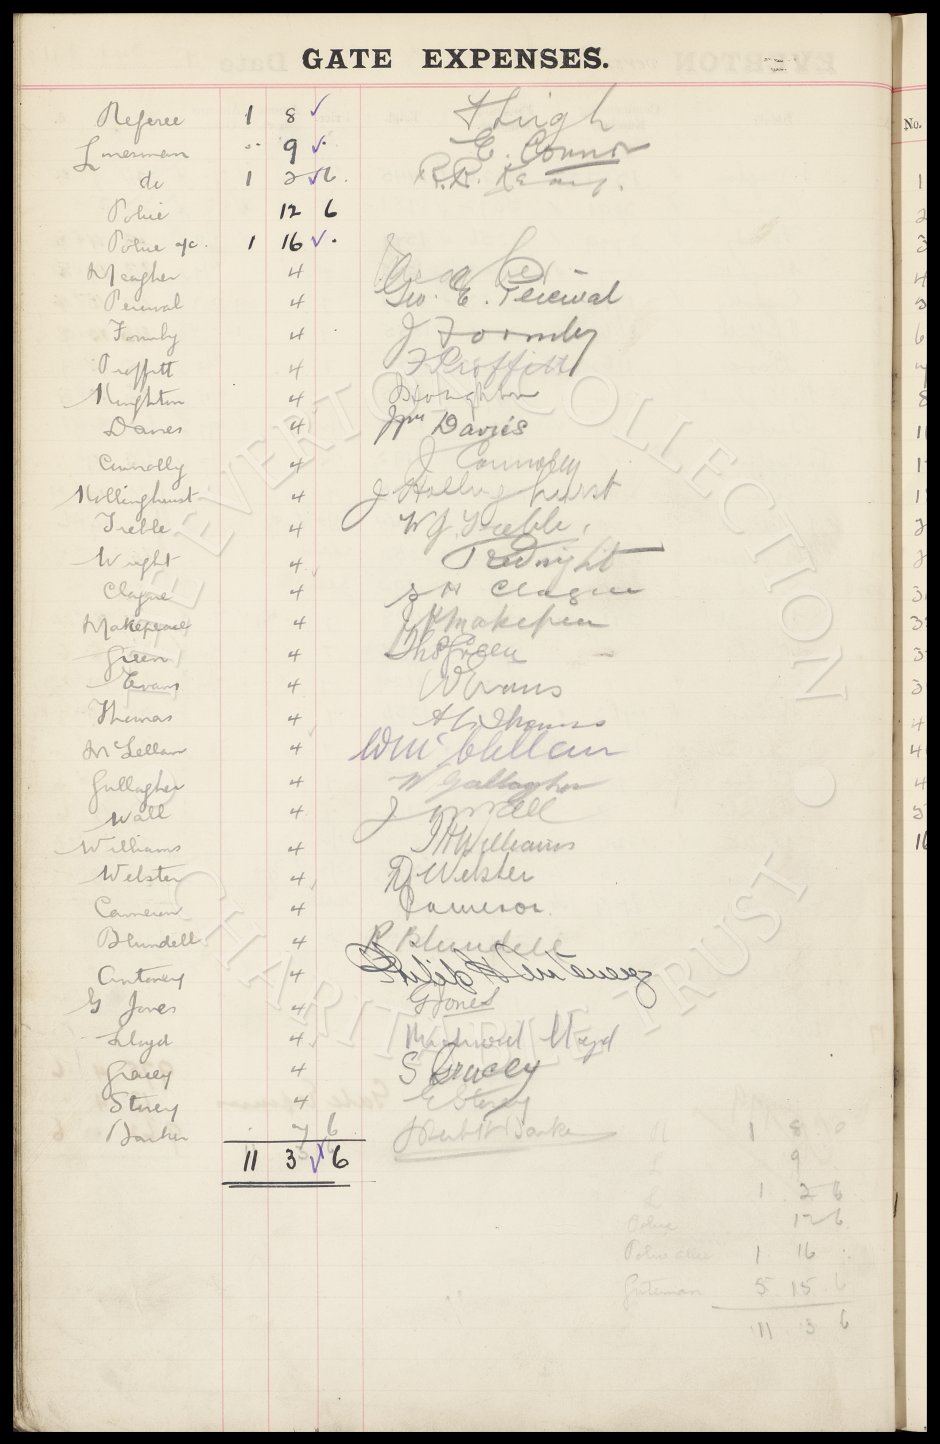 GATE EXPENSES.
Referee 1 8
Linesmen 9 E. Connor
do 1 2 6
Police 12 6
Police a/c. 1 16
Meagher 4
Percival 4 Geo. E. Percival
Formby 4 J Formby
Proffitt 4 F Proffitt
Houghton 4 Houghton
Davies 4 Davies
Connolly 4 J Connolly
Hollinghurst 4 J Hollinghurst
Treble 4 W J. Treble
Wright 4
Clague 4 Clague
Makepeace 4
Green 4 Thos Green
Evans 4 W Evans
Thomas 4 Thomas
McLellan 4 W McLellan
Gallagher 4 W Gallagher
Wall 4 J Wall
Williams 4 Williams
Webster 4 Webster
Cameron 4 Cameron
Blundell 4 R Blundell
4 Philip
G Jones 4 G Jones
Lloyd 4 Lloyd
Gracey 4 S Gracey
Storey 4 E Storey
Barker 7 6
11 3 6
R 1 8 0
L 9
L 1 2 6
Police 12 6
Police 1 16
Gateman 5 15 6
11 3 6
No.
EVERTON COLLECTION • CHARITABLE TRUST •